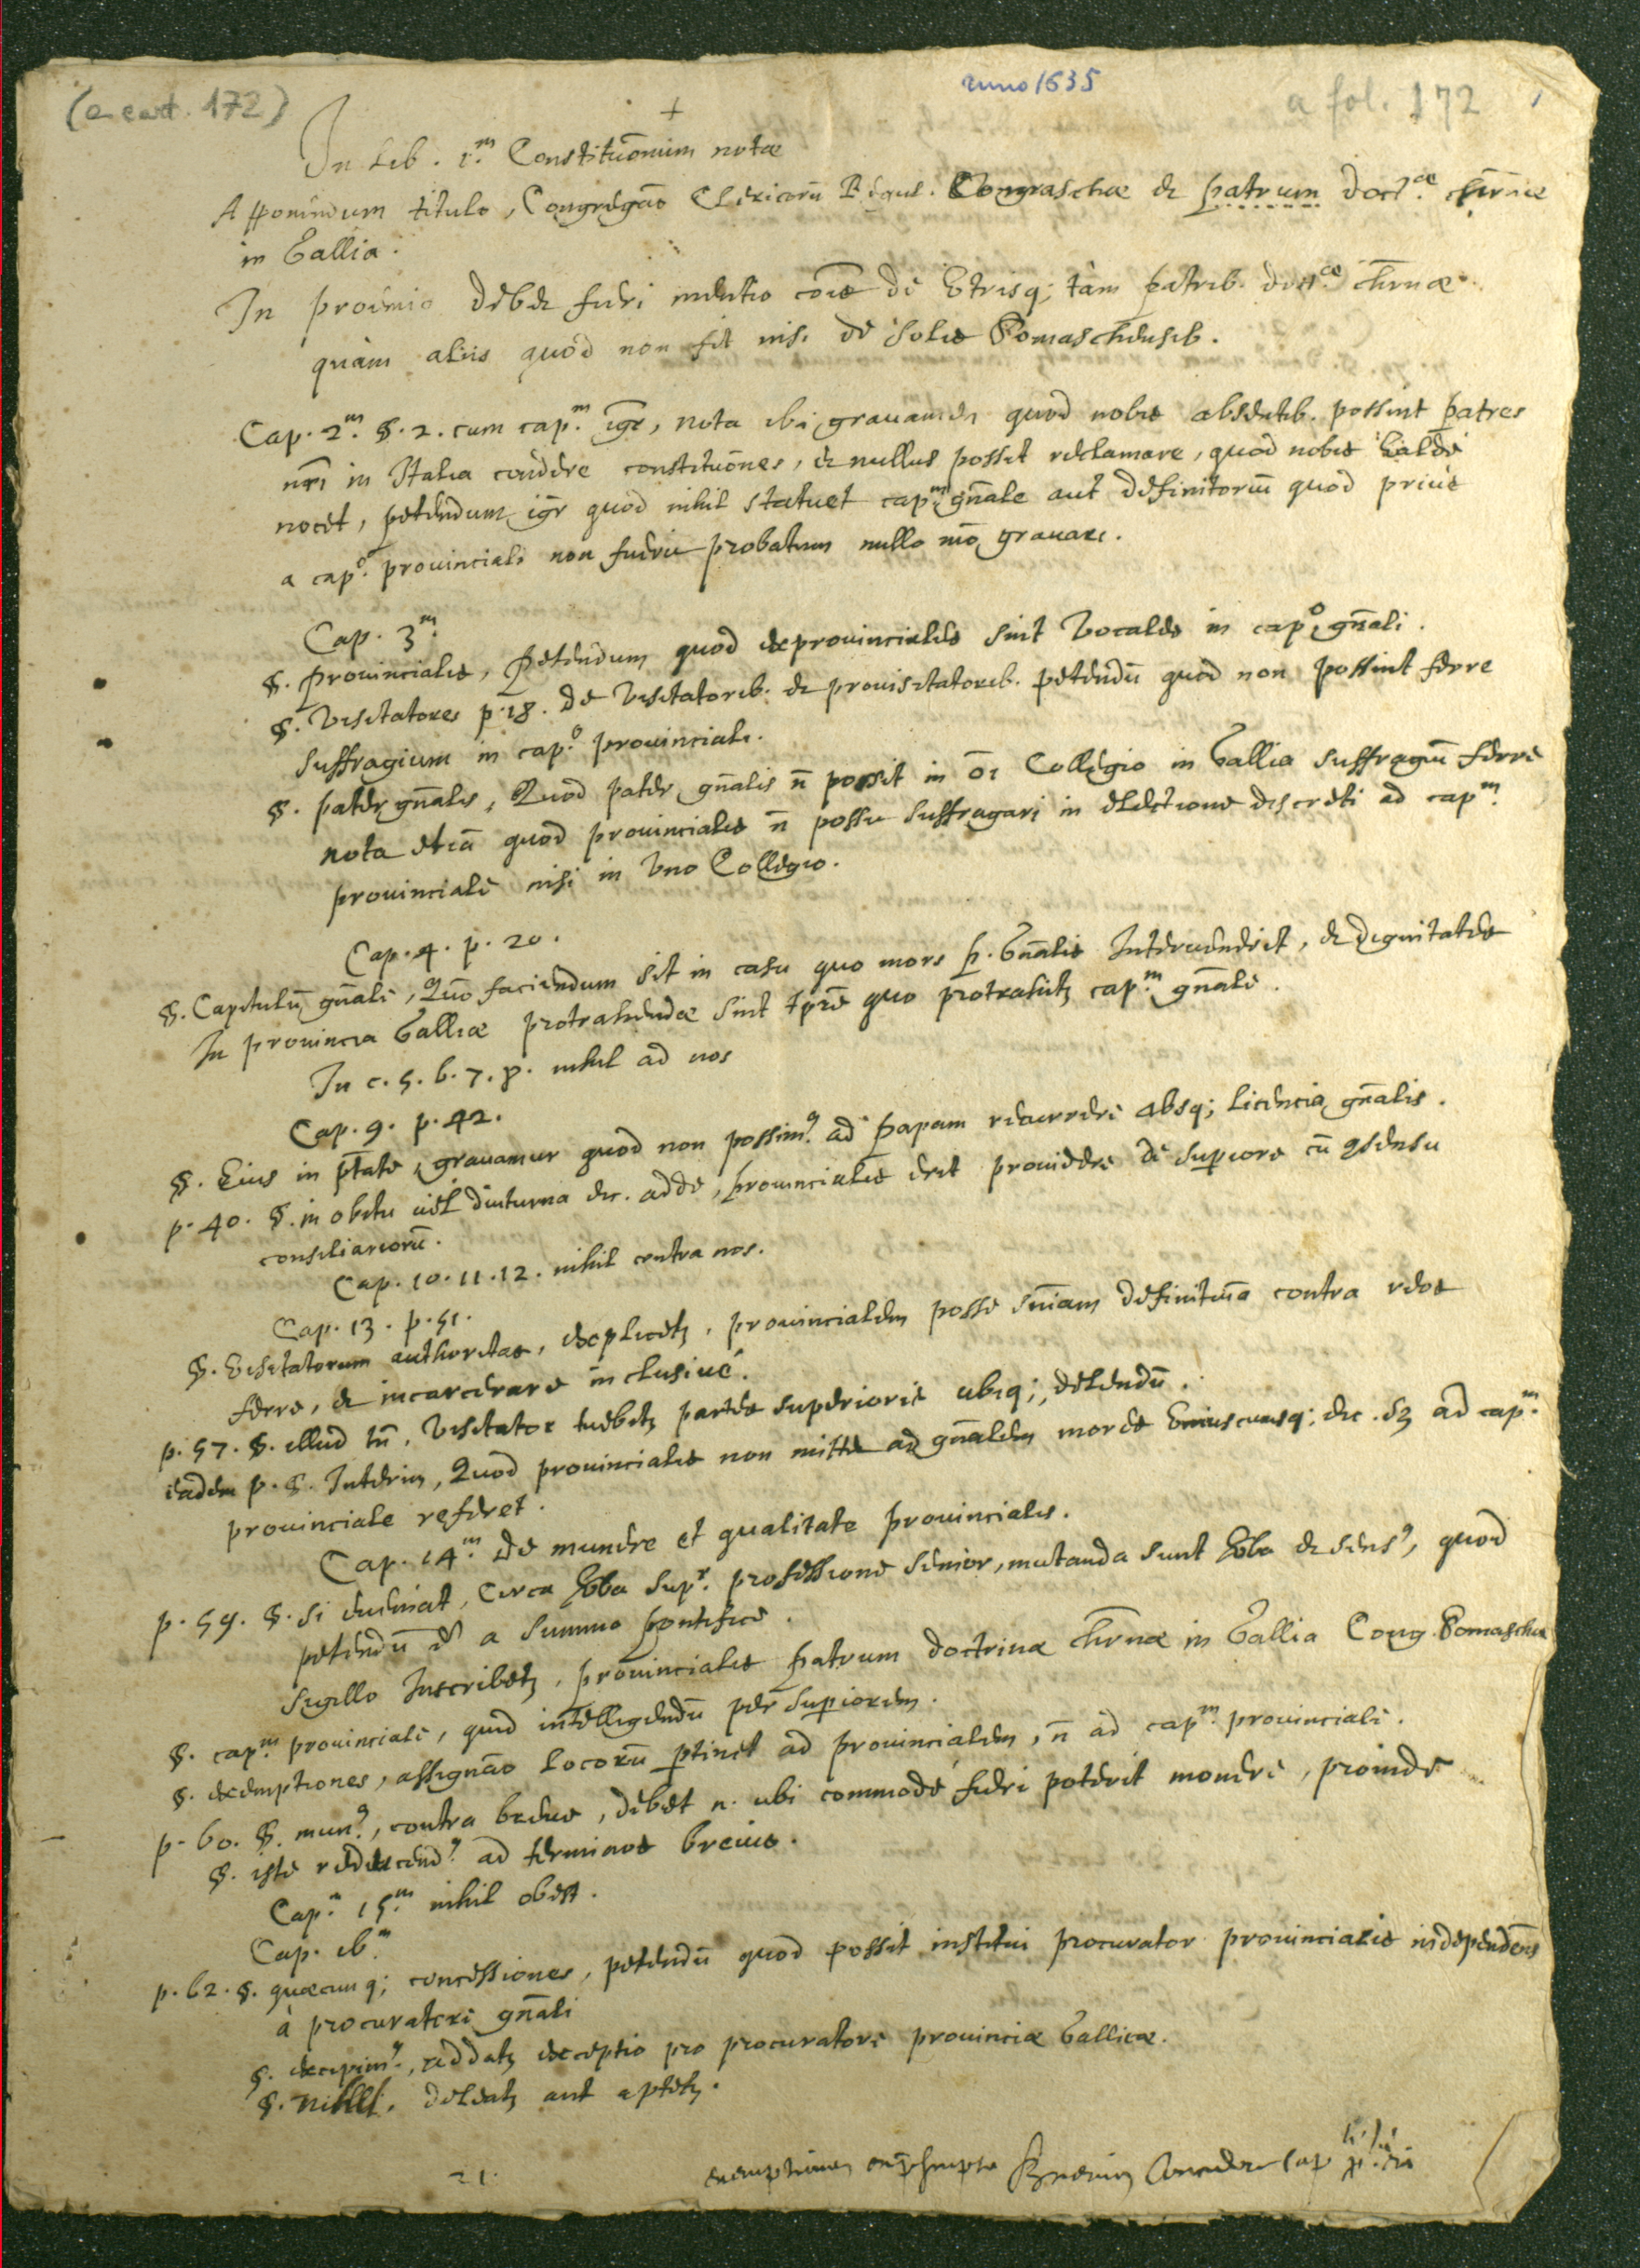 (a cart. 172)
anno 1635
a fol. 172
+
In Lib. 1.m Constitutōnum notæ
Apponendum titulo, Congregāo Clericorū Regul. Somaschæ et patrum doct.æ chrīnæ
in Gallia.
In proemio debet fieri mentio cōīs de utrisq; tàm patrib. doct.æ chrīnæ
quàm aliis quod non fit nisi de solis Somaschensib.
Cap. 2.m §. 2. cum cap.m igr, nota ibi gravamen quod nobis absentib. possint patres
nrī in Italia condere constitutōnes, et nullus possit reclamare, quod nobis valde
nocet, petendum igr quod nihil statuet cap.m gnāle aut definitoriū quod priùs
a cap.o provinciali non fuerit probatum nullo mō gravari.
Cap. 3.m
§. Provincialis, Petendum quod exprovinciales sint vocales in cap.o gnāli.
§. Visitatores p. 18. de visitatorib. et provisitatorib. petendū quod non possint ferre
suffragium in cap.o provinciali.
§. Pater gnālis, Quod pater gnālis n̄ possit in ōi Collegio in Gallia suffragiū ferre
nota etiā quod provincialis n̄ possit suffragari in electione discreti ad cap.m
provinciale nisi in uno Collegio.
Cap. 4. p. 20.
§. Capitulū gnāle, Quō faciendum sit in casu quo mors p. Gnālis intervenerit, et dignitates
In provincia Galliæ protrahendæ sint tpre quo protrahetz cap.m gnāle.
In c. 5. 6. 7. 8. nihil ad nos
Cap. 9. p. 42.
§. Eius in ptāte, gravamur quod non possim9 ad Papam recurrere absq; licencia gnālis.
p. 40. §. in obitu vel diuturna etc. adde, provincialis erit providere de superiore cū 9sensu
consiliariorū.
Cap. 10. 11. 12. nihil contra nos.
Cap. 13. p. 51.
§. Visitatorum authoritas, explicetz, provincialem posse snīam definitivā contra reos
ferre, et incarcerare inclusivé.
p. 57. §. illud tn̄, Visitator tuebitz partes superioris ubiq; delendū.
eadem p. §. Interim, Quod provincialis non mittet ad gnālem mores uniuscuiusq; etc. sz ad cap.m
provinciale referet.
Cap. 14.m De munere et qualitate provincialis.
p. 59. §. si eveniat, Circa vba sup.r professione senior, mutanda sunt vba et sens9, quod
petendū est a summo Pontifice.
Sigillo Inscribetz, provincialis Patrum doctrinæ chrīnæ in Gallia Cong. Somaschæ
§. cap.m provinciale, quid intelligendū per superiorem.
§. exemptiones, assignāo locorū ptinet ad provincialem, n̄ ad cap.m provinciale.
p. 60. §. mun9, contra breve, debet n. ubi commodé fieri poterit monere, proinde
§. iste reducend9 ad terminos brevis.
Cap. 15.m nihil obest.
Cap. 16.m
p. 62. §. quæcunq; concessiones, petendū quod possit institui procurator provincialis independens
à procuratore gnāli
§. excipim9, addatz exceptio pro procuratore provinciæ Gallicæ.
§. nihil. deleatz aut aptetz.
21.